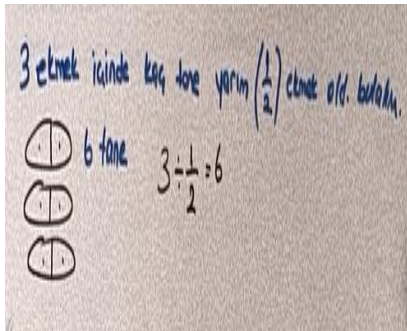 3 ekmek içinde kaç tane yarım (1/2) ekmek old. bulalım.
6 tane
3 ÷ 1/2 = 6